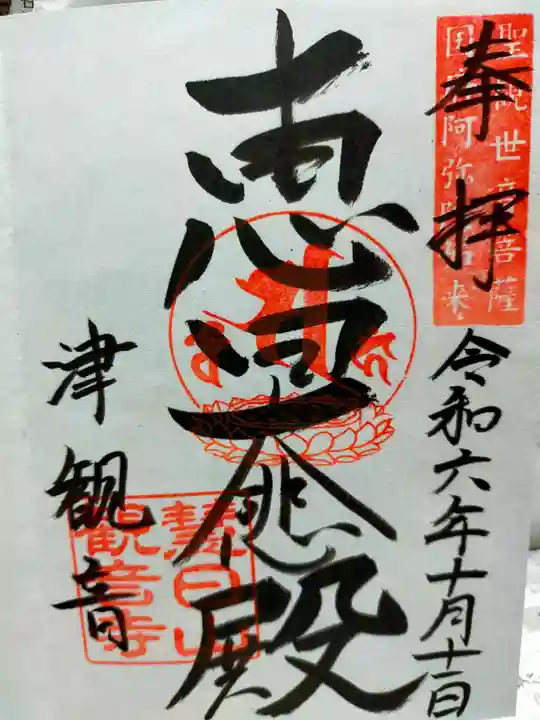 聖観世音菩薩
国府阿弥陀如来
奉拝
令和六年十月十二日
恵日大悲殿
津観音
慧日山
観音寺